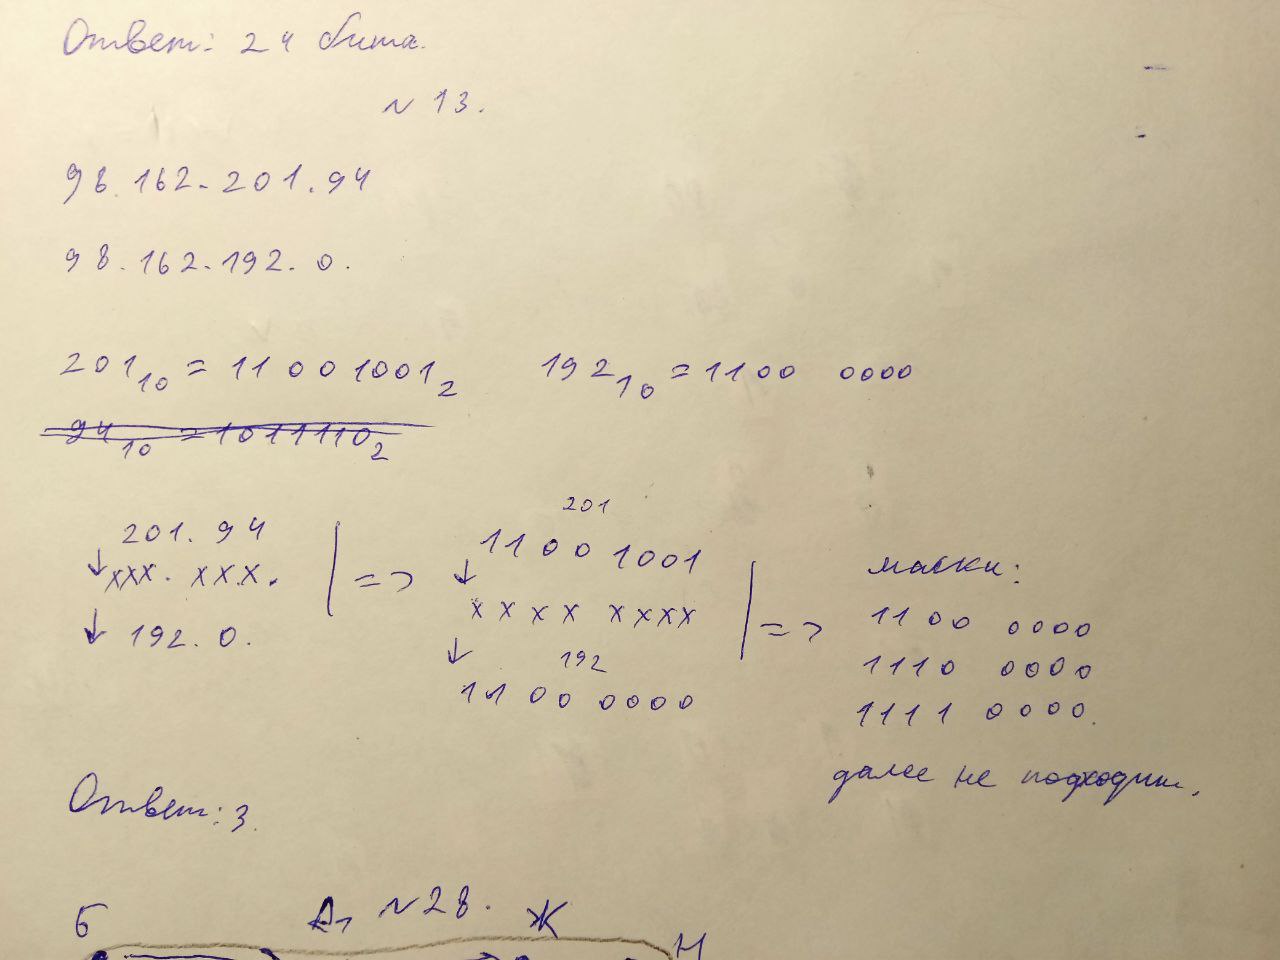 Ответ: 24 бита.
№ 13.
98.162.201.94
98.162.192.0.
201₁₀ = 11001001₂ 192₁₀ = 1100 0000
94₁₀ = 1011110₂
201.94
xxx. xxx.
192.0.
=>
201
1100 1001
xxxx xxxx
192
1100 0000
=>
маски:
1100 0000
1110 0000
1111 0000.
далее не подходит.
Ответ: 3.
№28.
Б Ж Н